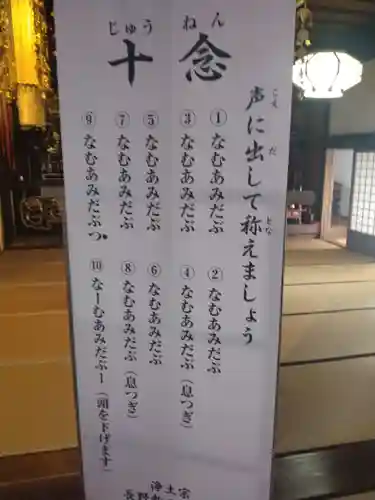 じゅうねん
十念
声に出して称えましょう
① なむあみだぶ
② なむあみだぶ
③ なむあみだぶ
④ なむあみだぶ(息つぎ)
⑤ なむあみだぶ
⑥ なむあみだぶ
⑦ なむあみだぶ
⑧ なむあみだぶ(息つぎ)
⑨ なむあみだぶつ
⑩ なーむあみだぶー(頭を下げます)
浄土宗
長野